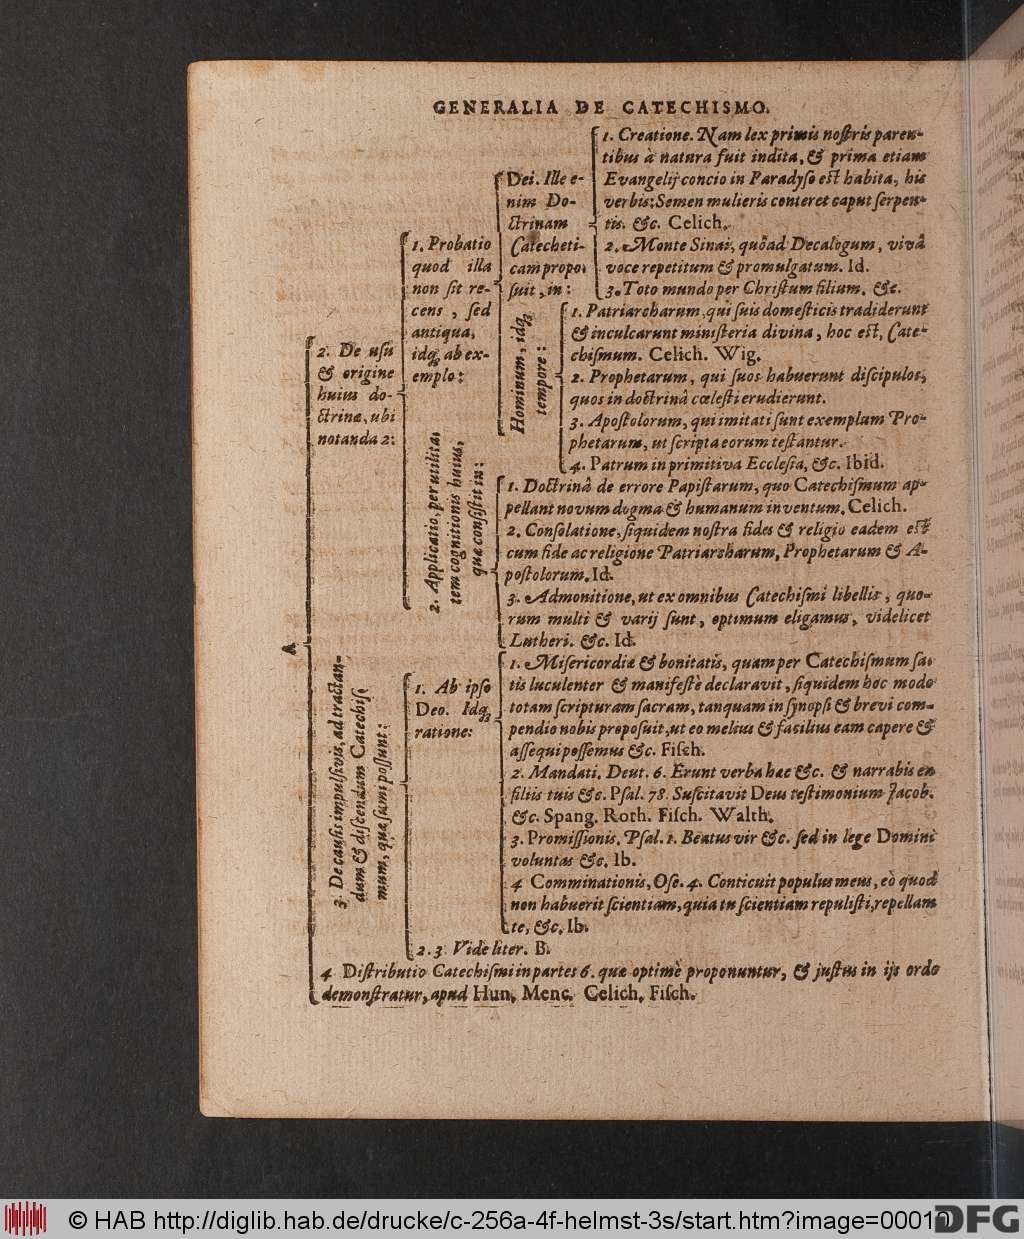 GENERALIA DE CATECHISMO.
A
2. De usu
& origine
huius do-
ctrinæ, ubi
notanda 2:
1. Probatio
quod illa
non sit re-
cens, sed
antiqua,
idq; ab ex-
emplo:
Dei. Ille e-
nim Do-
ctrinam
Catecheti-
cam propo-
suit, in:
1. Creatione. Nam lex primis nostris paren-
tibus à natura fuit indita, & prima etiam
Evangelij concio in Paradyso est habita, his
verbis: Semen mulieris conteret caput serpen-
tis. &c. Celich.
2. Monte Sinai, quoad Decalogum, vivâ
voce repetitum & promulgatum. Id.
3. Toto mundo per Christum filium. &c.
Hominum, idq;
tempore:
1. Patriarcharum, qui suis domesticis tradiderunt
& inculcarunt ministeria divina, hoc est, Cate-
chismum. Celich. Wig.
2. Prophetarum, qui suos habuerunt discipulos,
quos in doctrinâ cœlesti erudierunt.
3. Apostolorum, qui imitati sunt exemplum Pro-
phetarum, ut scripta eorum testantur.
4. Patrum in primitiva Ecclesia, &c. Ibid.
2. Applicatio, per utilita-
tem cognitionis huius,
quæ consistit in:
1. Doctrinâ de errore Papistarum, quo Catechismum ap-
pellant novum dogma & humanum inventum. Celich.
2. Consolatione, siquidem nostra fides & religio eadem est
cum fide ac religione Patriarcharum, Prophetarum & A-
postolorum. Id.
3. Admonitione, ut ex omnibus Catechismi libellis, quo-
rum multi & varij sunt, optimum eligamus, videlicet
Lutheri. &c. Id.
3. De causis impulsivis, ad tractan-
dum & discendum Catechis-
mum, quæ sumi possunt:
1. Ab ipso
Deo. Idq;
ratione:
1. Misericordiæ & bonitatis, quam per Catechismum sa-
tis luculenter & manifestè declaravit, siquidem hoc modo
totam scripturam sacram, tanquam in synopsi & brevi com-
pendio nobis proposuit, ut eo melius & facilius eam capere &
assequi possemus &c. Fisch.
2. Mandati. Deut. 6. Erunt verba hæc &c. & narrabis ea
filiis tuis &c. Psal. 78. Suscitavit Deus testimonium Jacob.
&c. Spang. Roth. Fisch. Walth.
3. Promissionis. Psal. 1. Beatus vir &c. sed in lege Domini
voluntas &c. Ib.
4 Comminationis, Ose. 4. Conticuit populus meus, eò quod
non habuerit scientiam, quia tu scientiam repulisti, repellam
te, &c. Ib.
2. 3. Vide liter. B.
4 Distributio Catechismi in partes 6. quæ optimè proponuntur, & justus in ijs ordo
demonstratur, apud Hun. Menc. Celich. Fisch.
© HAB http://diglib.hab.de/drucke/c-256a-4f-helmst-3s/start.htm?image=00010
DFG